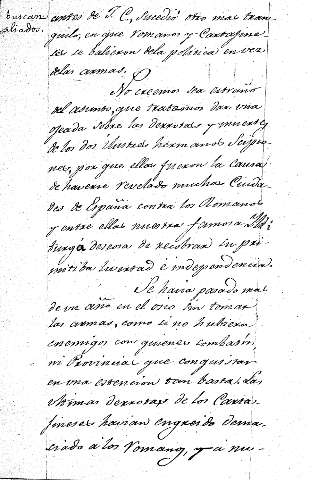 buscan
aliados.
antes de J. C., sucedió otro mas tran-
quilo, en que romanos y Cartagine-
ses se balieron de la politica en vez
de las armas.
No creemos sea estraño
del asunto, que tratamos dar una
ojeada sobre las derrotas y muertes
de los dos ilustres hermanos Scipio-
nes, por que ellas fueron la causa
de haverse revelado muchas Ciuda-
des de España contra los Romanos
y entre ellas nuestra famosa Ili-
turgi deseosa de recobrar su pri-
mitiba livertad é independencia.
Se havia pasado mas
de un año en el ocio sin tomar
las armas, como si no hubiera
enemigos con quienes combatir,
ni Provincia que conquistar
en una estencion tan basta. Las
ultimas derrotas de los Carta-
gineses havian engreido dema-
ciado á los romanos, y á nu-